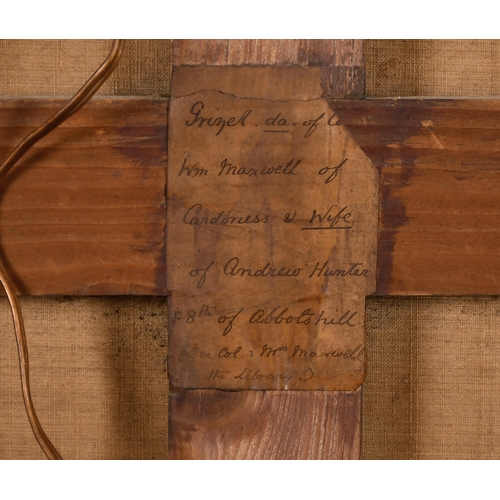 Grizel. da. of Co
Wm Maxwell of
Cardoness & Wife
of Andrew Hunter
8th of Abbotshill.
Col: & Mrs Maxwell
the Library)